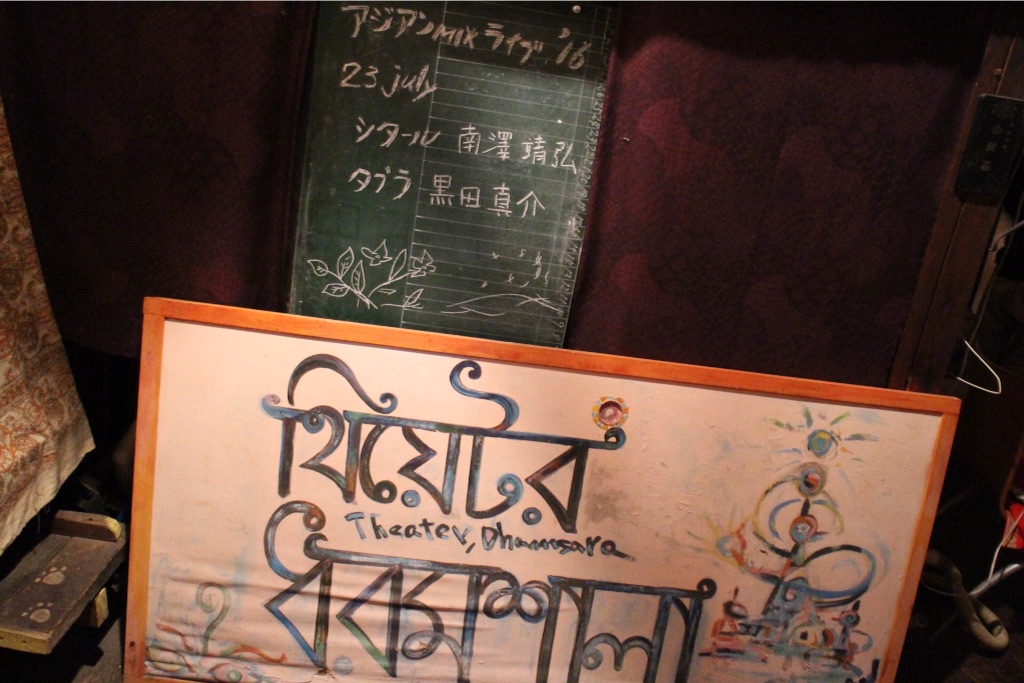 アジアンMIXライブ '16
23 july
シタール 南澤 靖弘
タブラ 黒田 真介
থিয়েটর
Theater, Dhamsara
ধীরমশালা